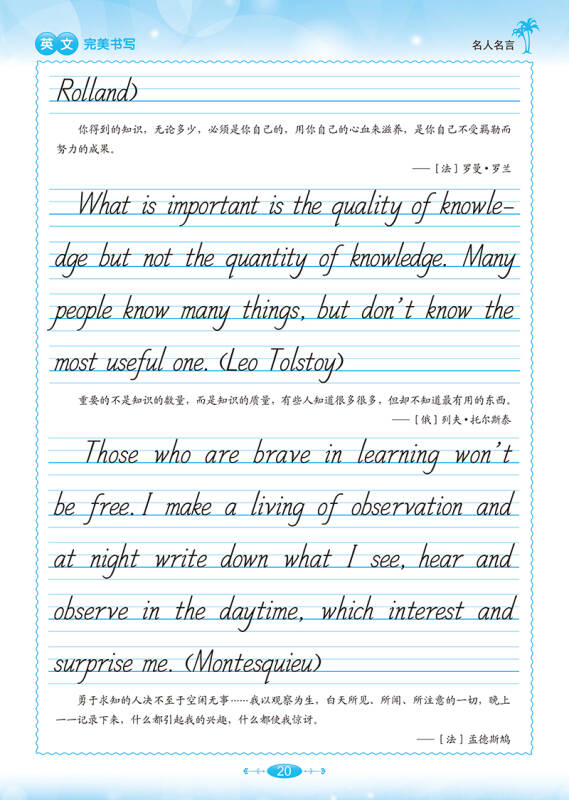 英文 完美书写
名人名言
Rolland)
你得到的知识，无论多少，必须是你自己的，用你自己的心血来滋养，是你自己不受羁勒而
努力的成果。
——［法］罗曼·罗兰
What is important is the quality of knowle-
dge but not the quantity of knowledge. Many
people know many things, but don't know the
most useful one. (Leo Tolstoy)
重要的不是知识的数量，而是知识的质量，有些人知道很多很多，但却不知道最有用的东西。
——［俄］列夫·托尔斯泰
Those who are brave in learning won't
be free. I make a living of observation and
at night write down what I see, hear and
observe in the daytime, which interest and
surprise me. (Montesquieu)
勇于求知的人决不至于空闲无事……我以观察为生，白天所见、所闻、所注意的一切，晚上
一一记录下来，什么都引起我的兴趣，什么都使我惊讶。
——［法］孟德斯鸠
20